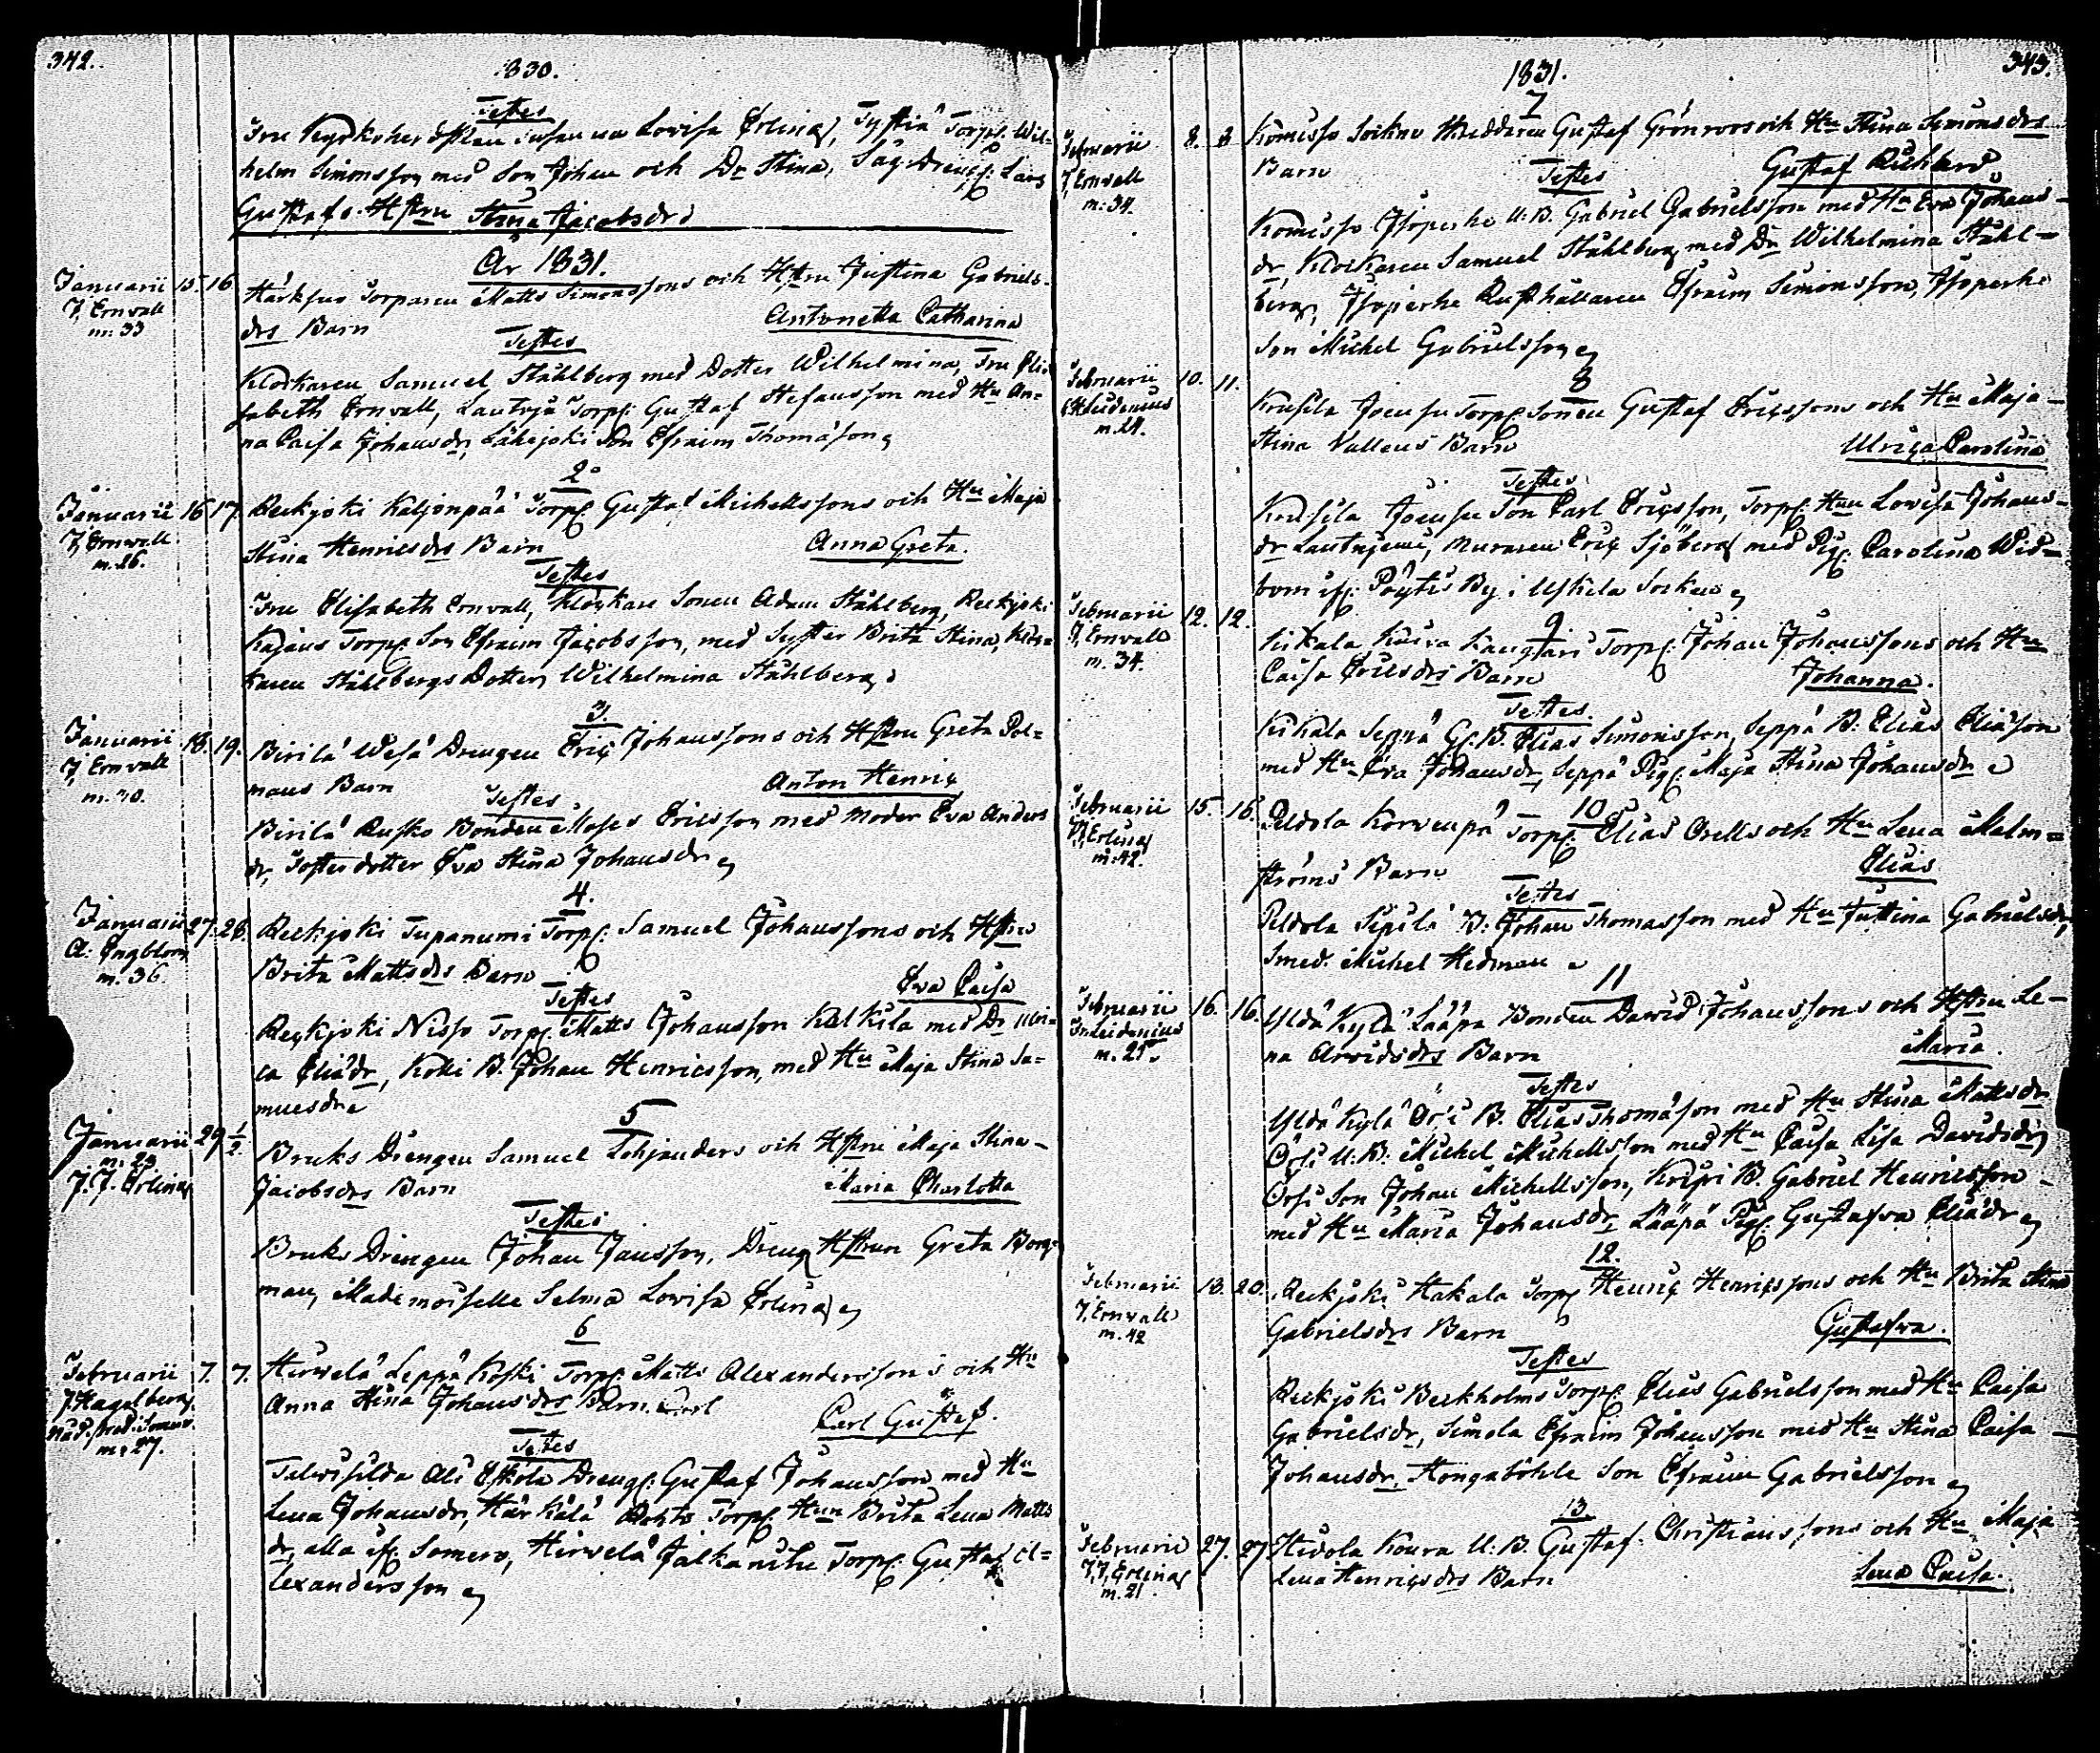 342.
1830.
Testes
Fru Kyrkoherdskan Susanna Lovisa Erling, Torp: Wil=
helm Simonsson med Son Johan och Dr Stina, Såg Drengs: Lars
Gustafs Hstru Stina Jacobsdr
År 1831.
Januarii 15. 16
J, Ernvall
m: 33
Härksuo Torparen Matts Simonssons och Hstru Justina Gabriels-
drs Barn Antonetta Catharina
Testes
Klockaren Samuel Ståhlberg med Dotter Wilhelmina, Fru Eli-
sabeth Ernvall, Torp: Gustaf Stefansson med Hu An-
na Caisa Johansdr, Lähejoki Son Efraim Thomason
2
Januarii 16 17.
J, Ernvall
m. 26.
Reckjoki Kaljonpää Torp: Gustaf Michelssons och Hu Maja
Stina Henricsdrs Barn Anna Greta.
Testes
Fru Elisabeth Ernvall, Klockare Sonen Adam Ståhlberg, Reckjoki
Torp: Son Efraim Jacobsson, med Syster Brita Stina, Kloc-
karen Ståhlbergs Dotter Wilhelmina Ståhlberg
3.
Januarii 18. 19.
J, Ernvall
m. 40.
Birilä Wesä Drengen Eric Johanssons och Hstru Greta Pol=
mans Barn Anton Henric
Testes
Birilä Rusko Bonden Moses Ericsson med Moder Eva Anders
dr, Eva Stina Johansdr
4.
Januarii 27. 28.
A. Engblom
m. 36.
Reckjoki Tupanumi Torp: Samuel Johanssons och Hstru
Brita Mattsdrs Barn Eva Caisa
Testes
Reckjoki Torp: Matts Johansson med Dr Ulri-
ca Eliädr, B. Johan Henricsson, med Hu Maja Stina Sa=
muelsdr
5
Januarii 29 1/2.
m: 23
J. J. Erling
Bruks Drengen Samuel Lohjanders och Hstru Maja Stina
Jacobsdrs Barn Maria Charlotta
Testes
Bruks Drengen Johan Jansson, Dreng Hstrun Greta Borg-
man, Mademoiselle Selma Lovisa Erling
6
Februarii 7. 7.
J Hagelberg
m: 27.
Hirvelä Leppä Koski Torp: Matts Alexanderssons och Hu
Anna Stina Johansdrs Barn. Carl Carl Gustaf.
Testes
Ali Eskola Drengs: Gustaf Johansson med Hu
Lena Johansdr, Härkälä Torp: Hun Brita Lena Matts
dr, alla ifr. Somero, Hirvelä Torp: Gustaf A=
lexandersson
343.
1831.
7
Februarii 8. 8
J, Ernvall
m: 34.
Gustaf Grönroos och Hu Stina Simonsdrs
Barn Gustaf Richard
Testes
U: B. Gabriel Gabrielsson med Hu Eva Johans-
dr Klockaren Samuel Ståhlberg med Dr Wilhelmina Ståhl=
berg, Rusthållaren Efraim Simonsson,
Son Michel Gabrielsson
8
Februarii 10. 11.
m. 24.
Torp: Sonen Gustaf Ericssons och Hu Maja
Stina Vallens Barn Ulrica Carolina
Testes
Son Carl Ericsson, Torp: Hun Lovisa Johans-
dr, Muraren Eric Sjöberg med Pig: Carolina Wid=
bom ifr: Pöytis By i Uskela Socken
9
Februarii 12. 12.
J, Ernvall
m. 34.
Kikala Torp: Johan Johanssons och Hu
Caisa Ericsdrs Barn Johanna.
Testes.
Kikala Seppä G: B. Elias Simonsson, Seppä B. Elias Eliäson
med Hu Eva Johansdr, Seppä Pig: Maja Stina Johansdr
10
Februarii 15. 16.
J, J, Erling
m: 42.
Peldola Korvenpä Torp: Elias Orells och Hu Lena Malm=
ströms Barn Elias
Testes
Peldola Sipilä B: Johan Thomasson med Hu Justina Gabrielsdr,
Smed. Michel Hedman
11
Februarii 16. 16.
m. 25.
Yldäkylä Lääpä Bonden David Johanssons och Hstru Le-
na Arvidsdrs Barn Maria.
Testes
Yldäkylä Örsi B. Elias Thomäson med Hu Stina Mattsdr
Örsi U. B: Michel Michelsson med Hu Caisa Lisa Davidsdr,
Örsi Son Johan Michelsson, B. Gabriel Henricsson
med Hu Maria Johansdr, Lääpä Pig: Gustafva Eliädr
12.
Februarii 18. 20.
J, Ernvall
m. 42
Reckjoki Hakala Torp: Henric Henricssons och Hu Brita Stina
Gabrielsdrs Barn Gustafva.
Testes
Reckjoki Beckholms Torp: Elias Gabrielsson med Hu Caisa
Gabrielsdr, Simola Efraim Johansson med Hu Stina Caisa
Johansdr, Hongaböhle Son Efraim Gabrielsson
13
Februarii 27. 27
J, J, Erling
m. 21
Hidola Koura U: B. Gustaf Christianssons och Hu Maja
Lena Henricsdrs Barn Lena Caisa.